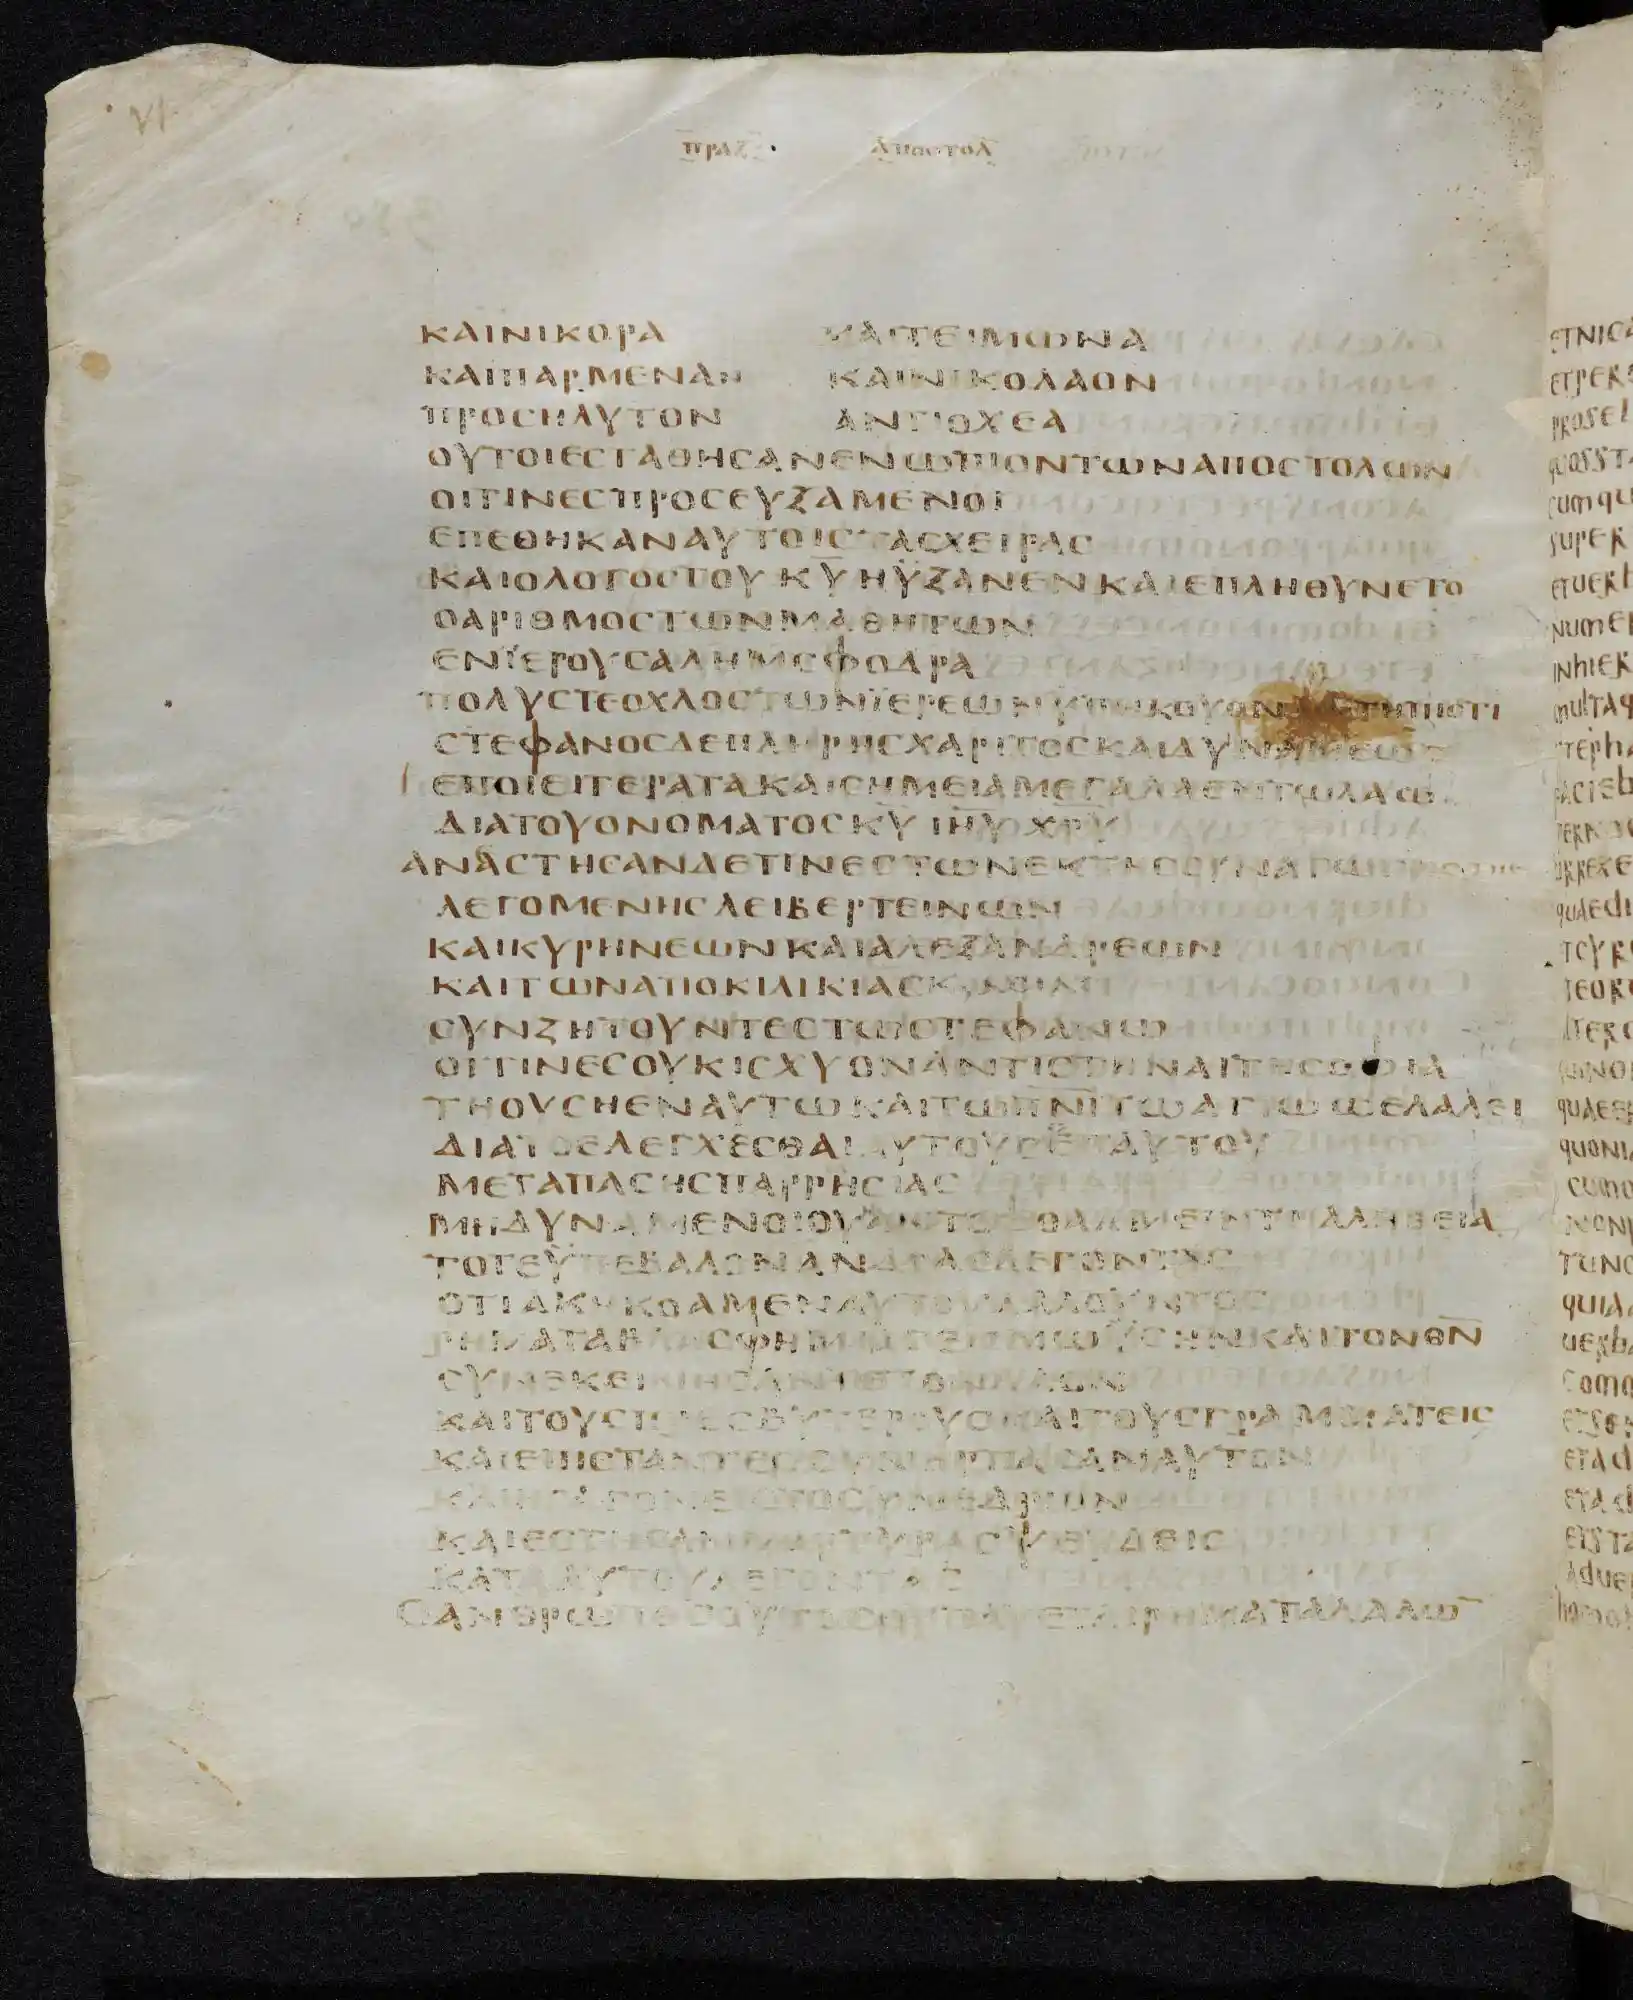 VI
ΠΡΑΞ ΑΠΟΣΤΟΛ
ΚΑΙΝΙΚΟΡΑ ΚΑΙΤΕΙΜΩΝΑ
ΚΑΙΠΑΡΜΕΝΑΝ ΚΑΙΝΙΚΟΛΑΟΝ
ΠΡΟΣΗΛΥΤΟΝ ΑΝΤΙΟΧΕΑ
ΟΥΤΟΙΕΣΤΑΘΗΣΑΝΕΝΩΠΙΟΝΤΩΝΑΠΟΣΤΟΛΩΝ
ΟΙΤΙΝΕΣΠΡΟΣΕΥΞΑΜΕΝΟΙ
ΕΠΕΘΗΚΑΝΑΥΤΟΙΣΤΑΣΧΕΙΡΑΣ
ΚΑΙΟΛΟΓΟΣΤΟΥΚ̅Υ̅ΗΥΞΑΝΕΝΚΑΙΕΠΛΗΘΥΝΕΤΟ
ΟΑΡΙΘΜΟΣΤΩΝΜΑΘΗΤΩΝ
ΕΝΪΕΡΟΥΣΑΛΗΜΣΦΟΔΡΑ
ΠΟΛΥΣΤΕΟΧΛΟΣΤΩΝΪΕΡΕΩΝΥΠΗΚΟΥΟΝ ΤΗΠΙΣΤΙ
ΣΤΕΦΑΝΟΣΔΕΠΛΗΡΗΣΧΑΡΙΤΟΣΚΑΙΔΥΝΑΜΕΩΣ
ΕΠΟΙΕΙΤΕΡΑΤΑΚΑΙΣΗΜΕΙΑΜΕΓΑΛΑΕΝΤΩΛΑΩ
ΔΙΑΤΟΥΟΝΟΜΑΤΟΣΚ̅Υ̅Ι̅Η̅Υ̅Χ̅Ρ̅Υ̅
ΑΝΑΣΤΗΣΑΝΔΕΤΙΝΕΣΤΩΝΕΚΤΗΣΣΥΝΑΓΩΓΗΣΤΗΣ
ΛΕΓΟΜΕΝΗΣΛΕΙΒΕΡΤΕΙΝΩΝ
ΚΑΙΚΥΡΗΝΕΩΝΚΑΙΑΛΕΞΑΝΔΡΕΩΝ
ΚΑΙΤΩΝΑΠΟΚΙΛΙΚΙΑΣ
ΣΥΝΖΗΤΟΥΝΤΕΣΤΩΣΤΕΦΑΝΩ
ΟΙΤΙΝΕΣΟΥΚΙΣΧΥΟΝΑΝΤΙΣΤΗΝΑΙΤΗΣΟΦΙΑ
ΤΗΟΥΣΗΕΝΑΥΤΩΚΑΙΤΩΠ̅Ν̅Ι̅ΤΩΑΓΙΩΩΕΛΑΛΕΙ
ΔΙΑΤΟΕΛΕΓΧΕΣΘΑΙΑΥΤΟΥΣΕΠΑΥΤΟΥ
ΜΕΤΑΠΑΣΗΣΠΑΡΡΗΣΙΑΣ
ΜΗΔΥΝΑΜΕΝΟΙΟΥΝ ΤΟΦΘΑΛΜΕΙΝΤΗΑΛΗΘΕΙΑ
ΤΟΤΕΥΠΕΒΑΛΟΝΑΝΔΡΑΣΛΕΓΟΝΤΑΣ
ΟΤΙΑΚΗΚΟΑΜΕΝΑΥΤΟΥΛΑΛΟΥΝΤΟΣ
ΡΗΜΑΤΑΒΛΑΣΦΗΜΙΑΣΕΙΣΜΩΥΣΗΝΚΑΙΤΟΝΘ̅Ν̅
ΣΥΝΕΚΕΙΝΗΣΑΝΤΕΤΟΝΛΑΟΝ
ΚΑΙΤΟΥΣΠΡΕΣΒΥΤΕΡΟΥΣΚΑΙΤΟΥΣΓΡΑΜΜΑΤΕΙΣ
ΚΑΙΕΠΙΣΤΑΝΤΕΣΣΥΝΗΡΠΑΣΑΝΑΥΤΟΝ
ΚΑΙΗΓΑΓΟΝΕΙΣΤΟΣΥΝΕΔΡΙΟΝ
ΚΑΙΕΣΤΗΣΑΝΜΑΡΤΥΡΑΣΨΕΥΔΕΙΣ
ΚΑΤΑΑΥΤΟΥΛΕΓΟΝΤΑΣ
ΟΑΝΘΡΩΠΟΣΟΥΤΟΣΟΥΠΑΥΕΤΑΙΡΗΜΑΤΑΛΑΛΩ̅